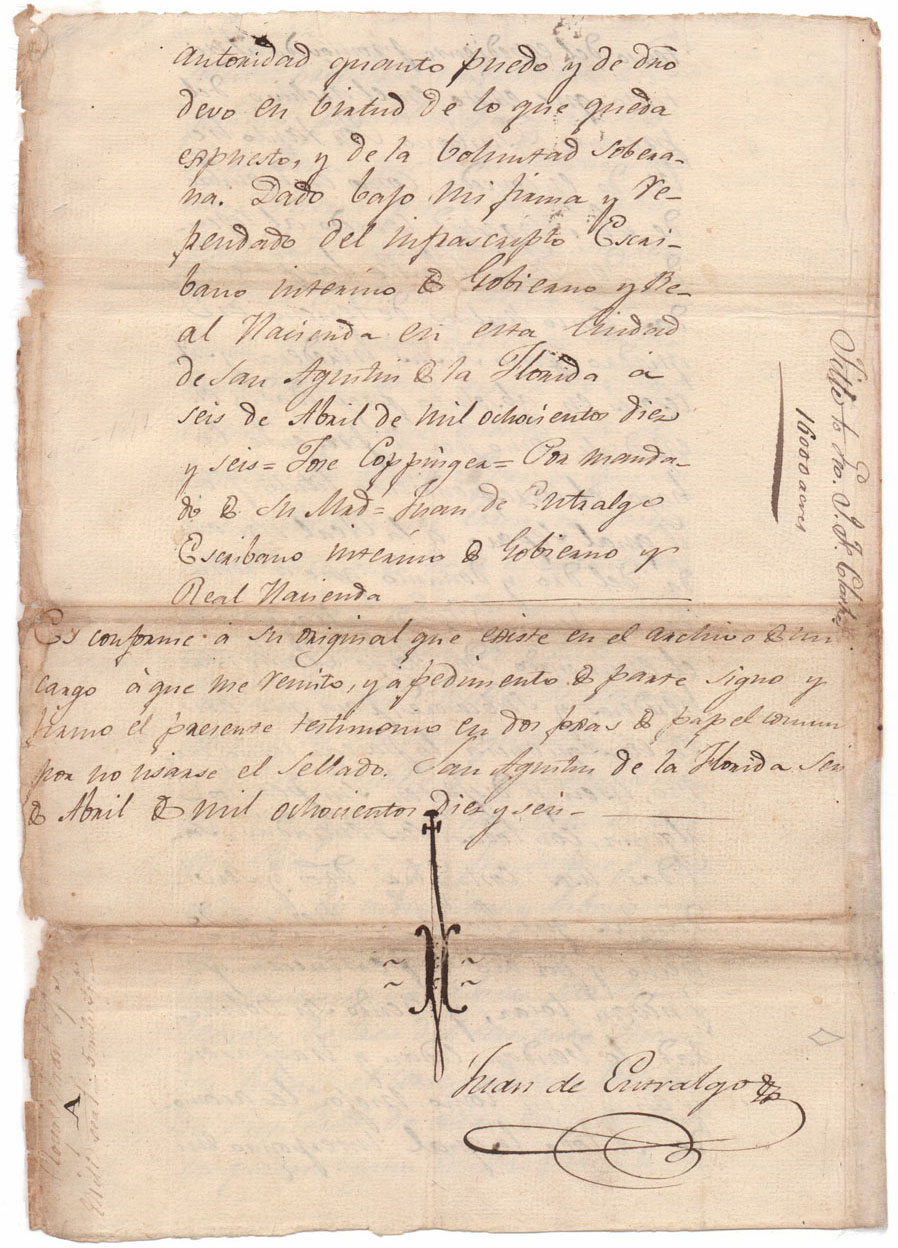 autoridad quanto puedo y de dr̃o
devo en virtud de lo que queda
expuesto, y de la voluntad sobera-
na. Dado bajo mi firma y re-
fendado del infrascripto Escri-
bano interino de Gobierno y Re-
al Hacienda en esta Ciudad
de San Agustin de la Florida á
seis de Abril de mil ochociento diez
y seis = Jose Coppinger = Por manda-
do de su Mrd = Juan de Entralgo
Escribano interino de Gobierno y
Real Hacienda
Es conforme á su original que existe en el archivo de mi
cargo á que me remito, y á pedimento de parte signo y
firmo el presente testimonio en dos foxas de papel comun
por no usarse el sellado. San Agustin de la Florida seis
de Abril de mil ochocientos diez y seis-
Juan de Entralgo
Title to G. J. F. Clarke
16000 acres
A